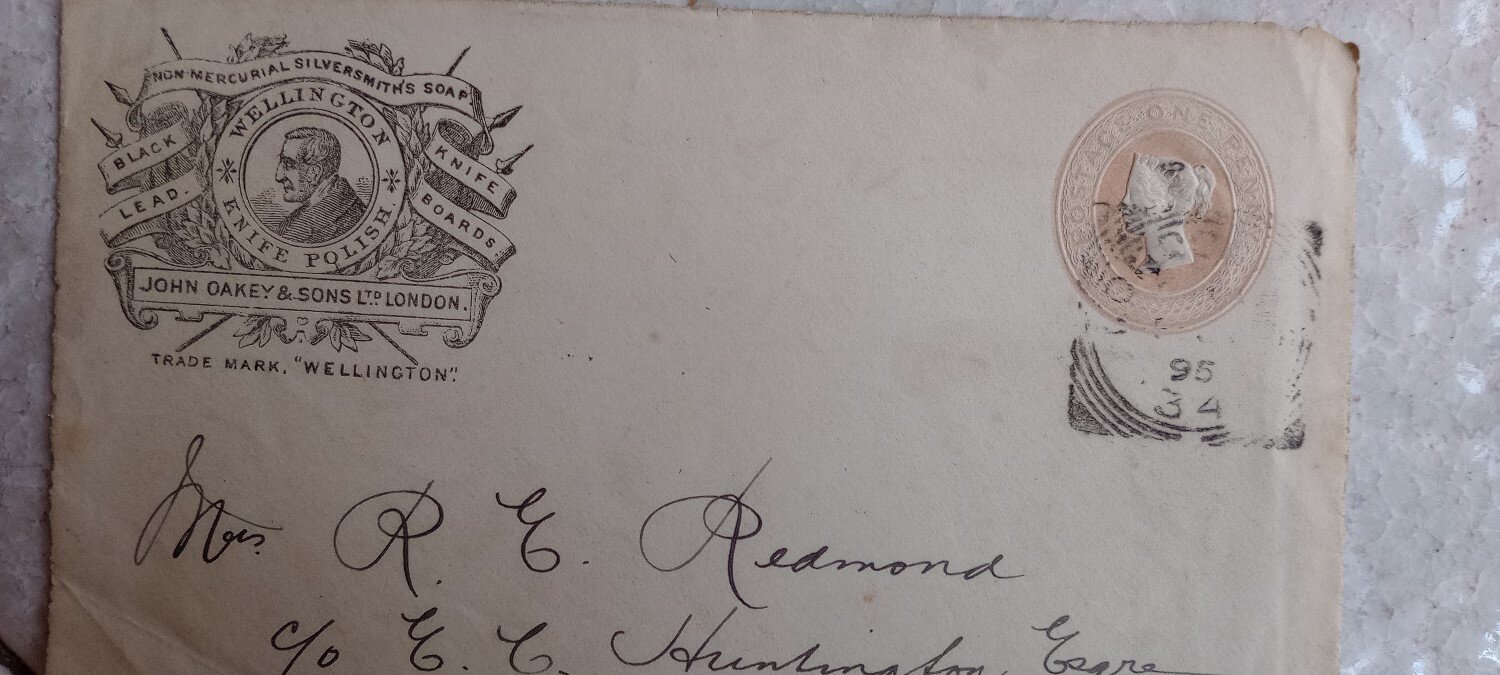 NON-MERCURIAL SILVERSMITH'S SOAP
WELLINGTON
KNIFE POLISH
BLACK
LEAD.
KNIFE
BOARDS
JOHN OAKEY & SONS LTD LONDON.
TRADE MARK, "WELLINGTON".
POSTAGE ONE PENNY
95
34
Mrs. R. E. Redmond
c/o E. C. Huntington, Esqre